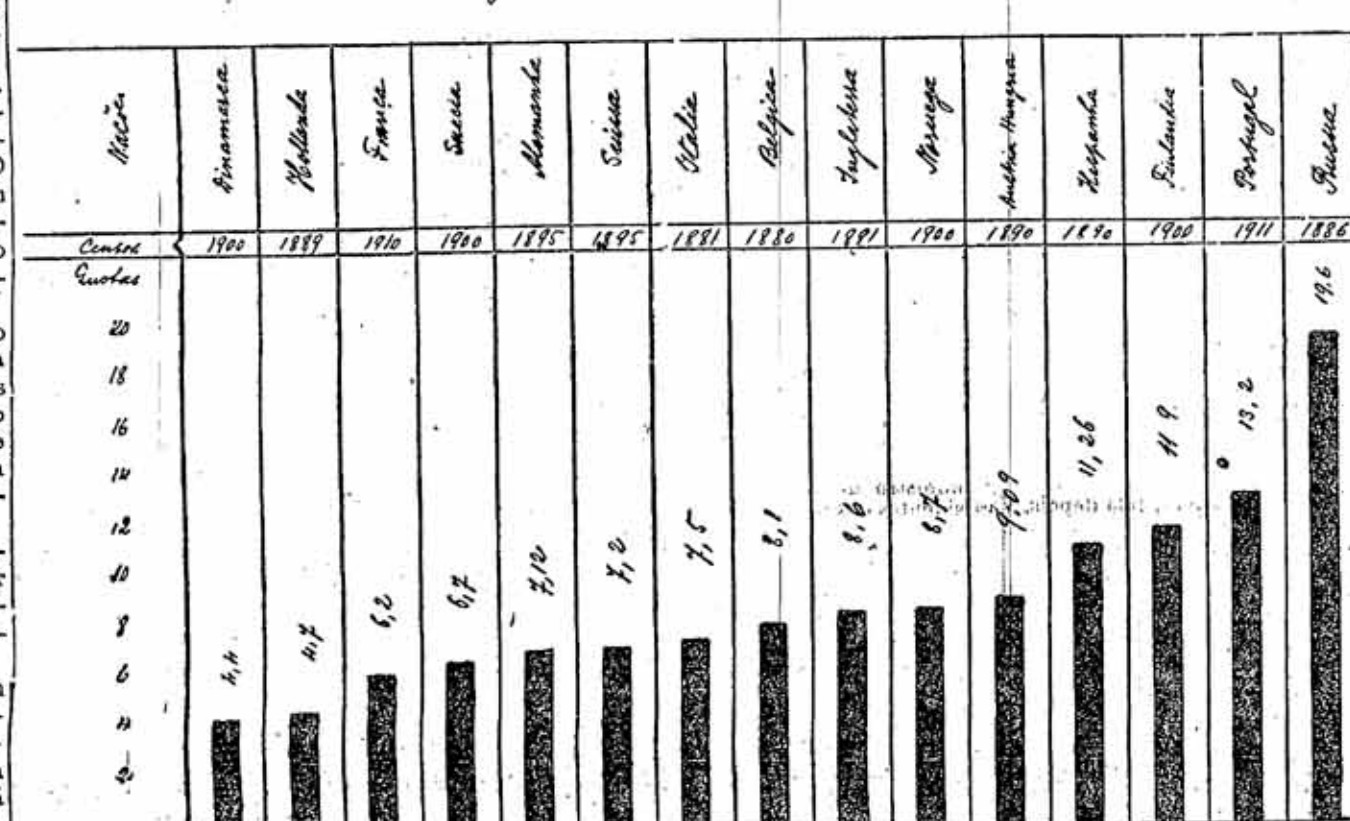 Nações Dinamarca Hollanda França Suecia Alemanha Suissa Italia Belgica Inglaterra Noruega Austria-Hungria Hespanha Finlandia Portugal Russia
Censos 1900 1889 1910 1900 1895 1895 1881 1880 1891 1900 1890 1890 1900 1911 1886
Quotas
19.6
20
18
16
13,2
11 9.
11,26
14
9,09
8,7
8,6
12
8,1
7,5
7,2
7,12
10
6,7
6,2
8
4,7
4,4
6
4
2